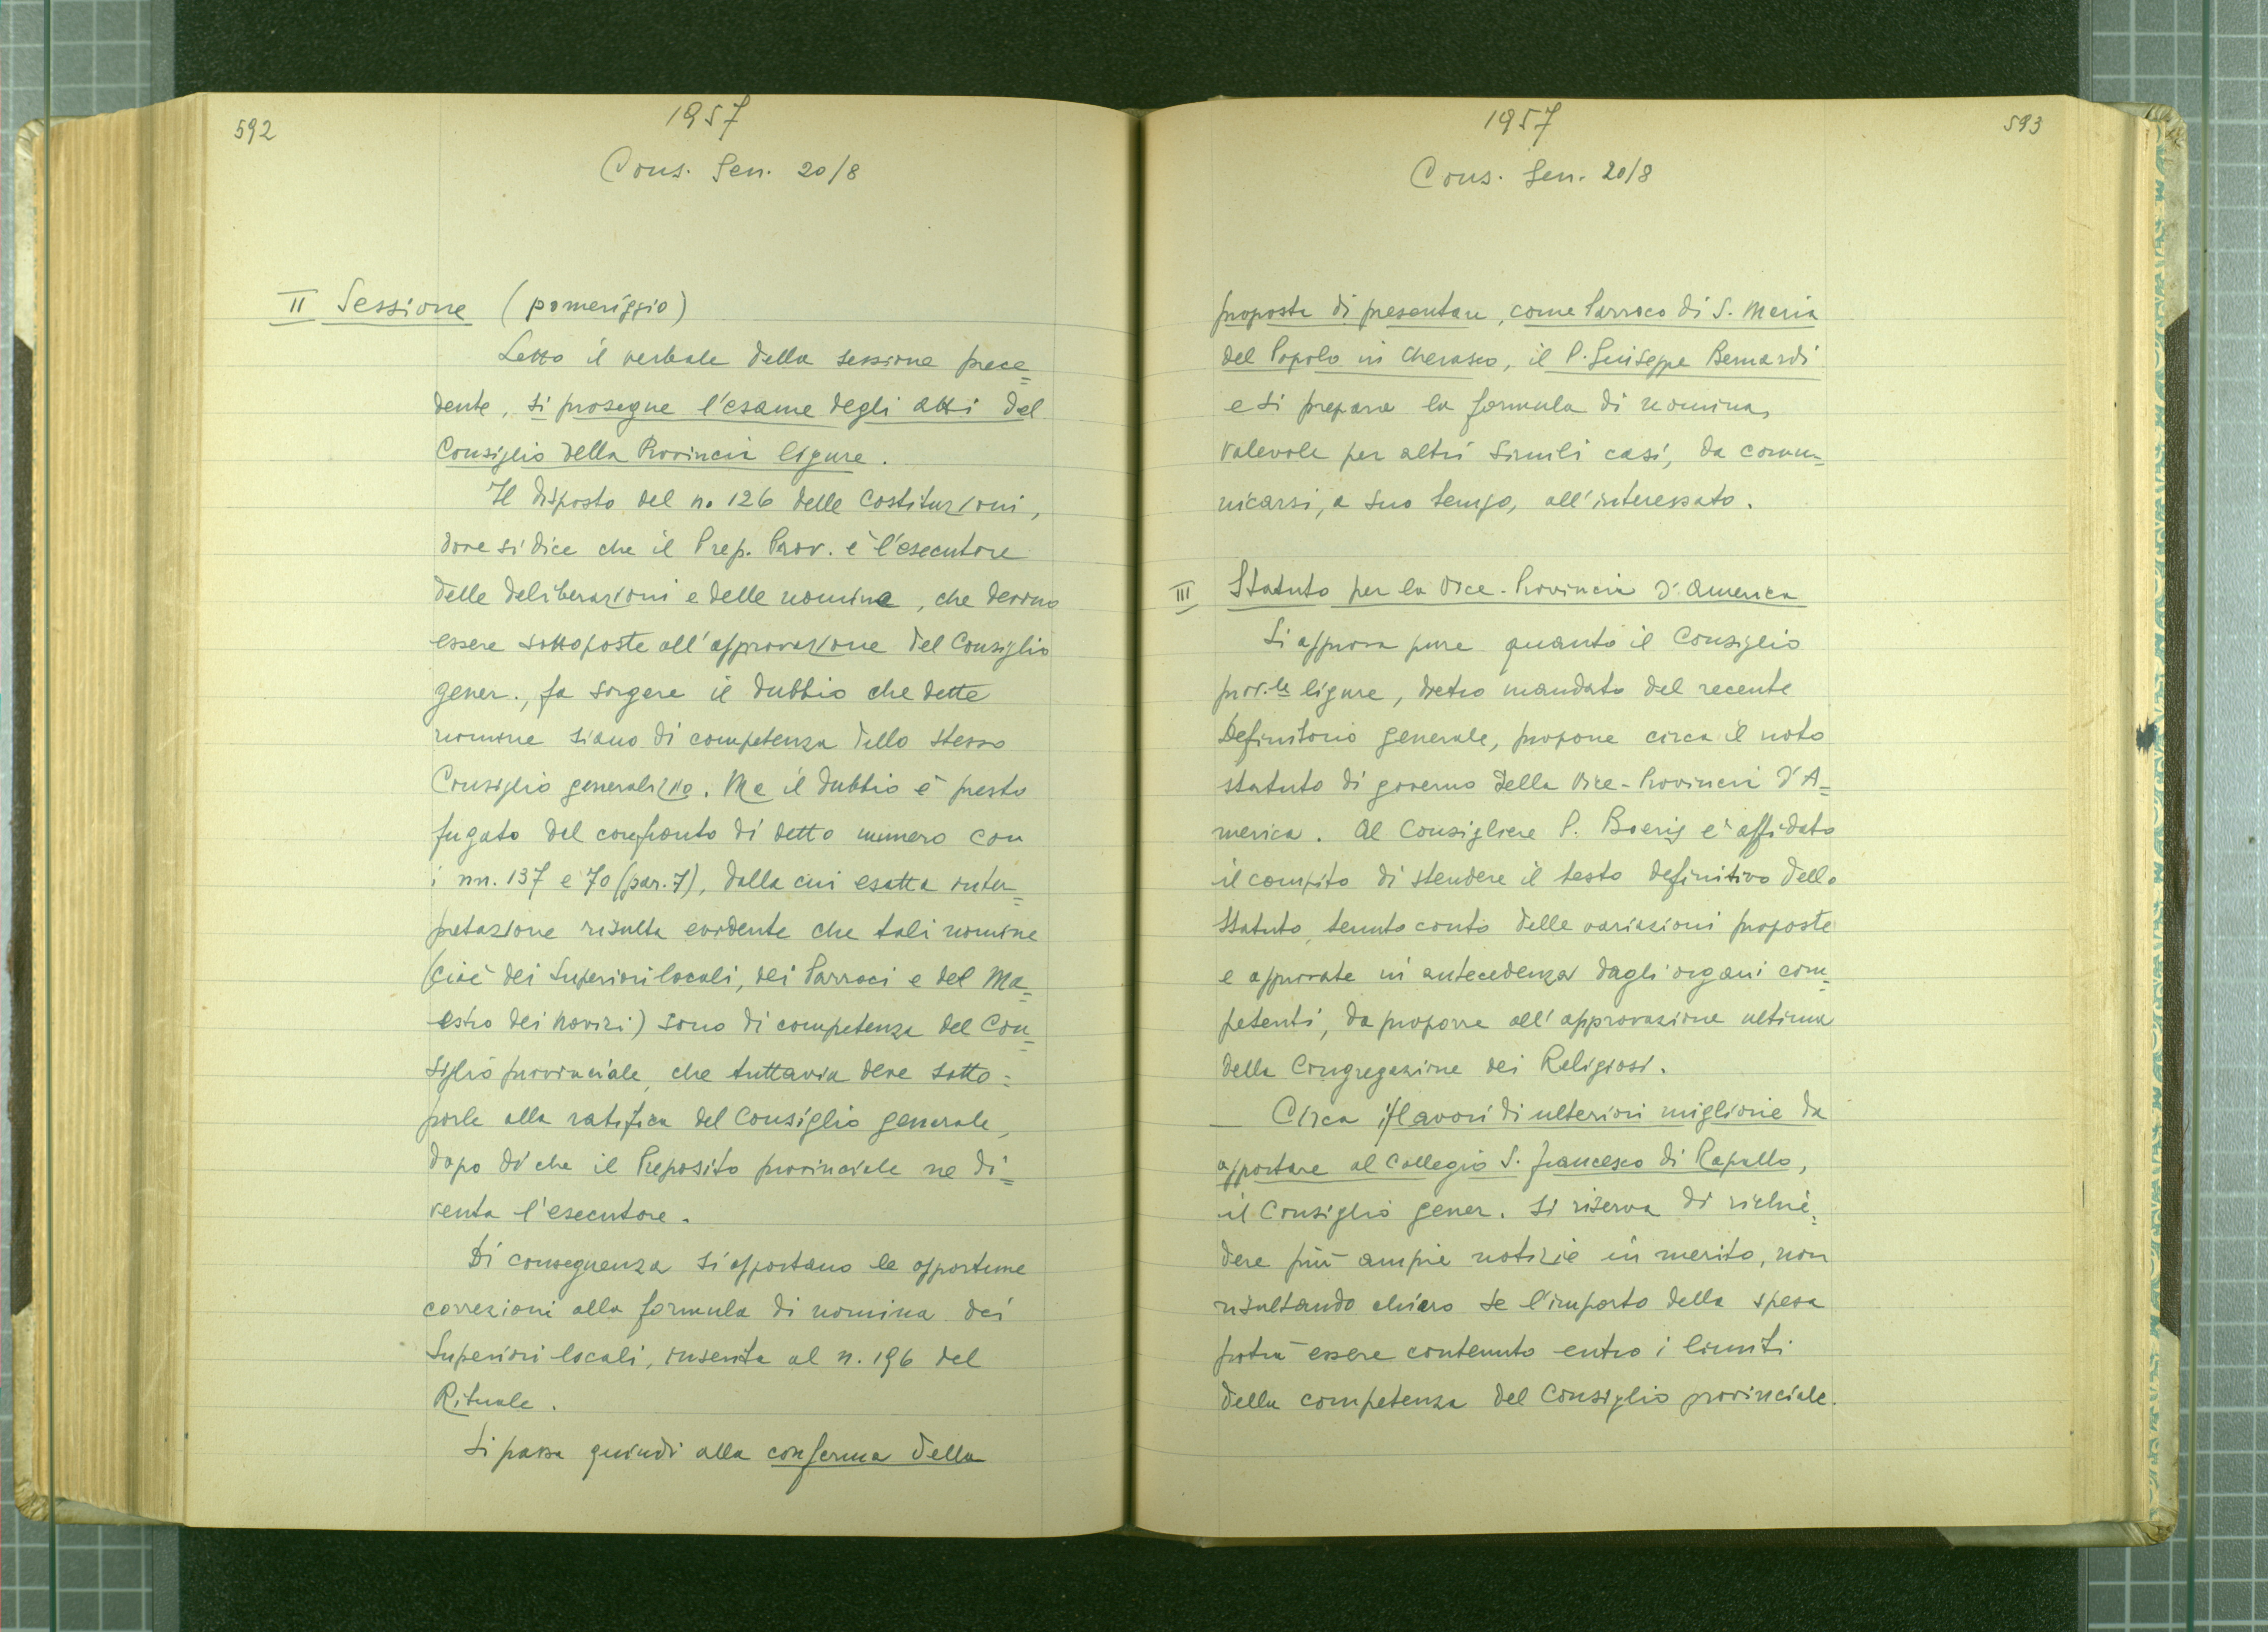 592
1957
Cons. Gen. 20/8
II Sessione (pomeriggio)
Letto il verbale della sessione prece=
dente, si prosegue l'esame degli atti del
Consiglio della Provincia ligure.
Il disposto del n. 126 delle Costituzioni,
dove si dice che il Prep. Prov. è l'esecutore
delle deliberazioni e delle nomine, che devono
essere sottoposte all'approvazione del Consiglio
gener., fa sorgere il dubbio che dette
nomine siano di competenza dello stesso
Consiglio generalizio. Ma il dubbio è presto
fugato dal confronto di detto numero con
i nn. 137 e 70 (par. 7), dalla cui esatta inter=
pretazione risulta evidente che tali nomine
(cioè dei Superiori locali, dei Parroci e del Ma=
estro dei novizi) sono di competenza del Con=
siglio provinciale, che tuttavia deve sotto=
porle alla ratifica del Consiglio generale,
dopo di che il Preposito provinciale ne di=
venta l'esecutore.
Di conseguenza si apportano le opportune
correzioni alla formula di nomina dei
Superiori locali, inserita al n. 196 del
Rituale.
Si passa quindi alla conferma della
593
1957
Cons. Gen. 20/8
proposta di presentare, come Parroco di S. Maria
del Popolo in Cherasco, il P. Giuseppe Bernardi
e si prepara la formula di nomina,
valevole per altri simili casi, da comu=
nicarsi, a suo tempo, all'interessato.
III Statuto per la Vice-Provincia d'America
Si approva pure quanto il Consiglio
prov.le ligure, dietro mandato del recente
Definitorio generale, propone circa il noto
statuto di governo della Vice-Provincia d'A=
merica. Al Consigliere P. Boeris è affidato
il compito di stendere il testo definitivo dello
Statuto, tenuto conto delle variazioni proposte
e approvate in antecedenza dagli organi com=
petenti, da proporre all'approvazione ultima
della Congregazione dei Religiosi.
— Circa i lavori di ulteriori migliorie da
apportare al Collegio S. Francesco di Rapallo,
il Consiglio gener. si riserva di richie=
dere più ampie notizie in merito, non
risultando chiaro se l'importo della spesa
potrà essere contenuto entro i limiti
della competenza del Consiglio provinciale.